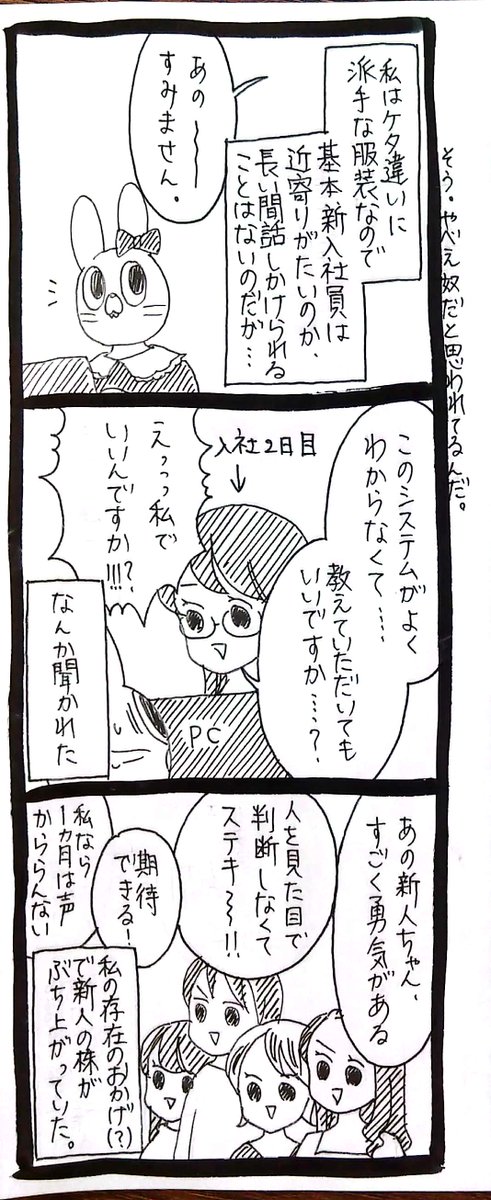 私はケタ違いに
派手な服装なので
基本新入社員は
近寄りがたいのか、
長い間話しかけられる
ことはないのだが…
あの〜〜
すみません。
そう。やべぇ奴だと思われてるんだ。
このシステムがよく
わからなくて……
教えていただいても
いいですか……?
入社2日目
えっっ私で
いいんですか!!!?
PC
なんか聞かれた
あの新人ちゃん、
すごく勇気がある
人を見た目で
判断しなくて
ステキ〜〜!!
期待
できる!
私なら
1ヵ月は声
かけらんない
私の存在のおかげ(?)
で新人の株が
ぶち上がっていた。